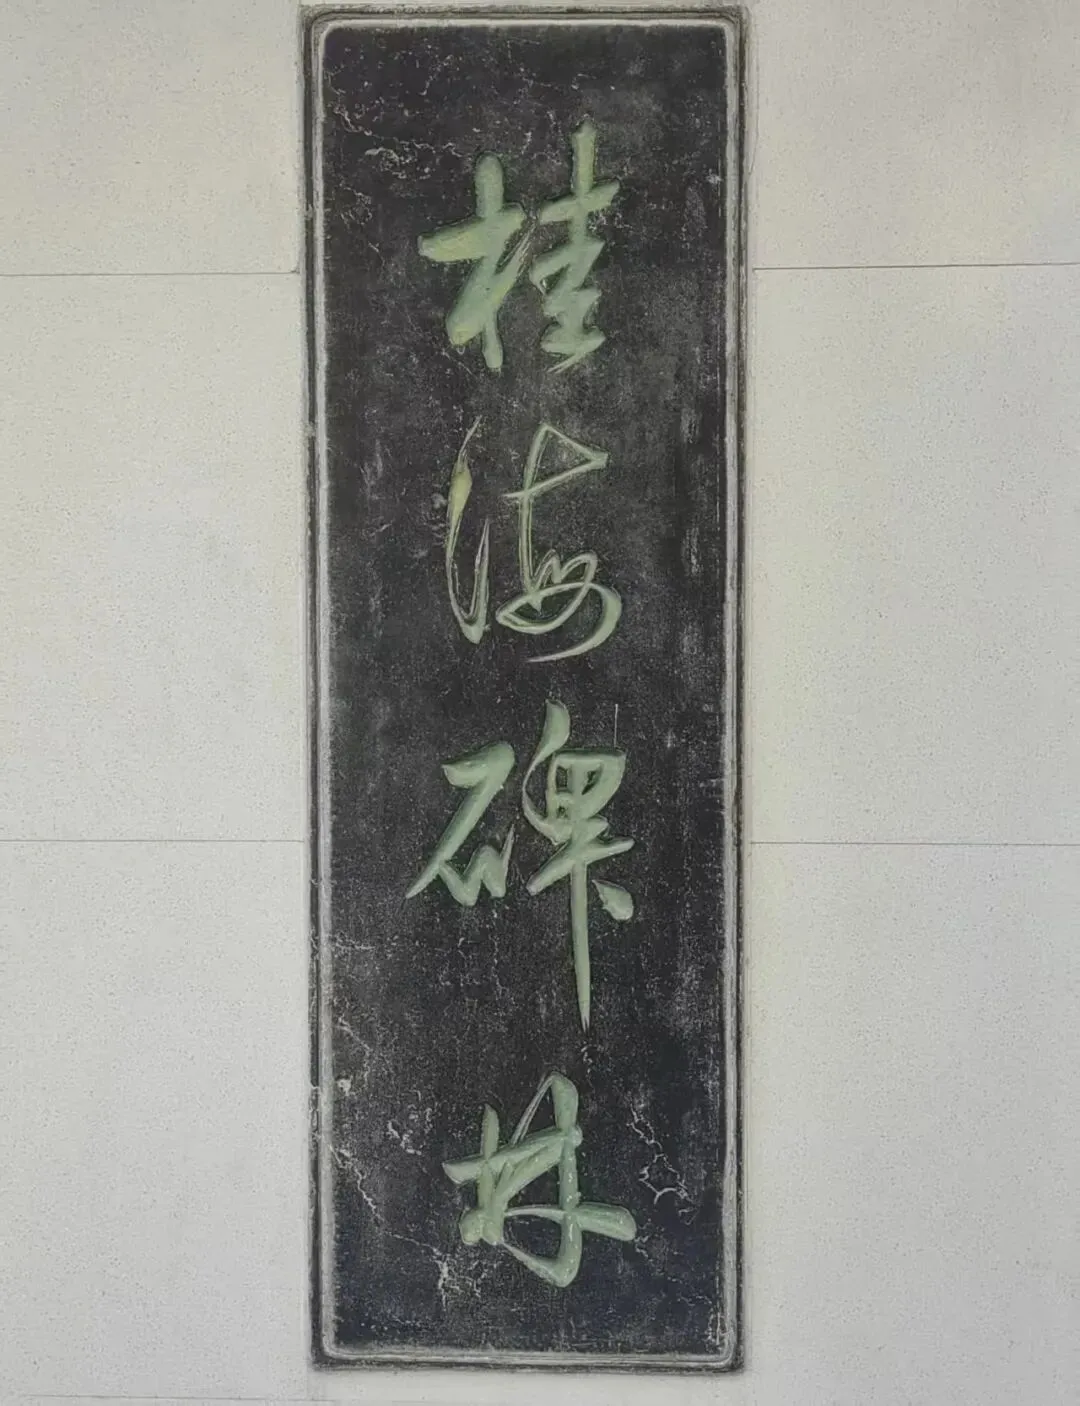 桂海碑林